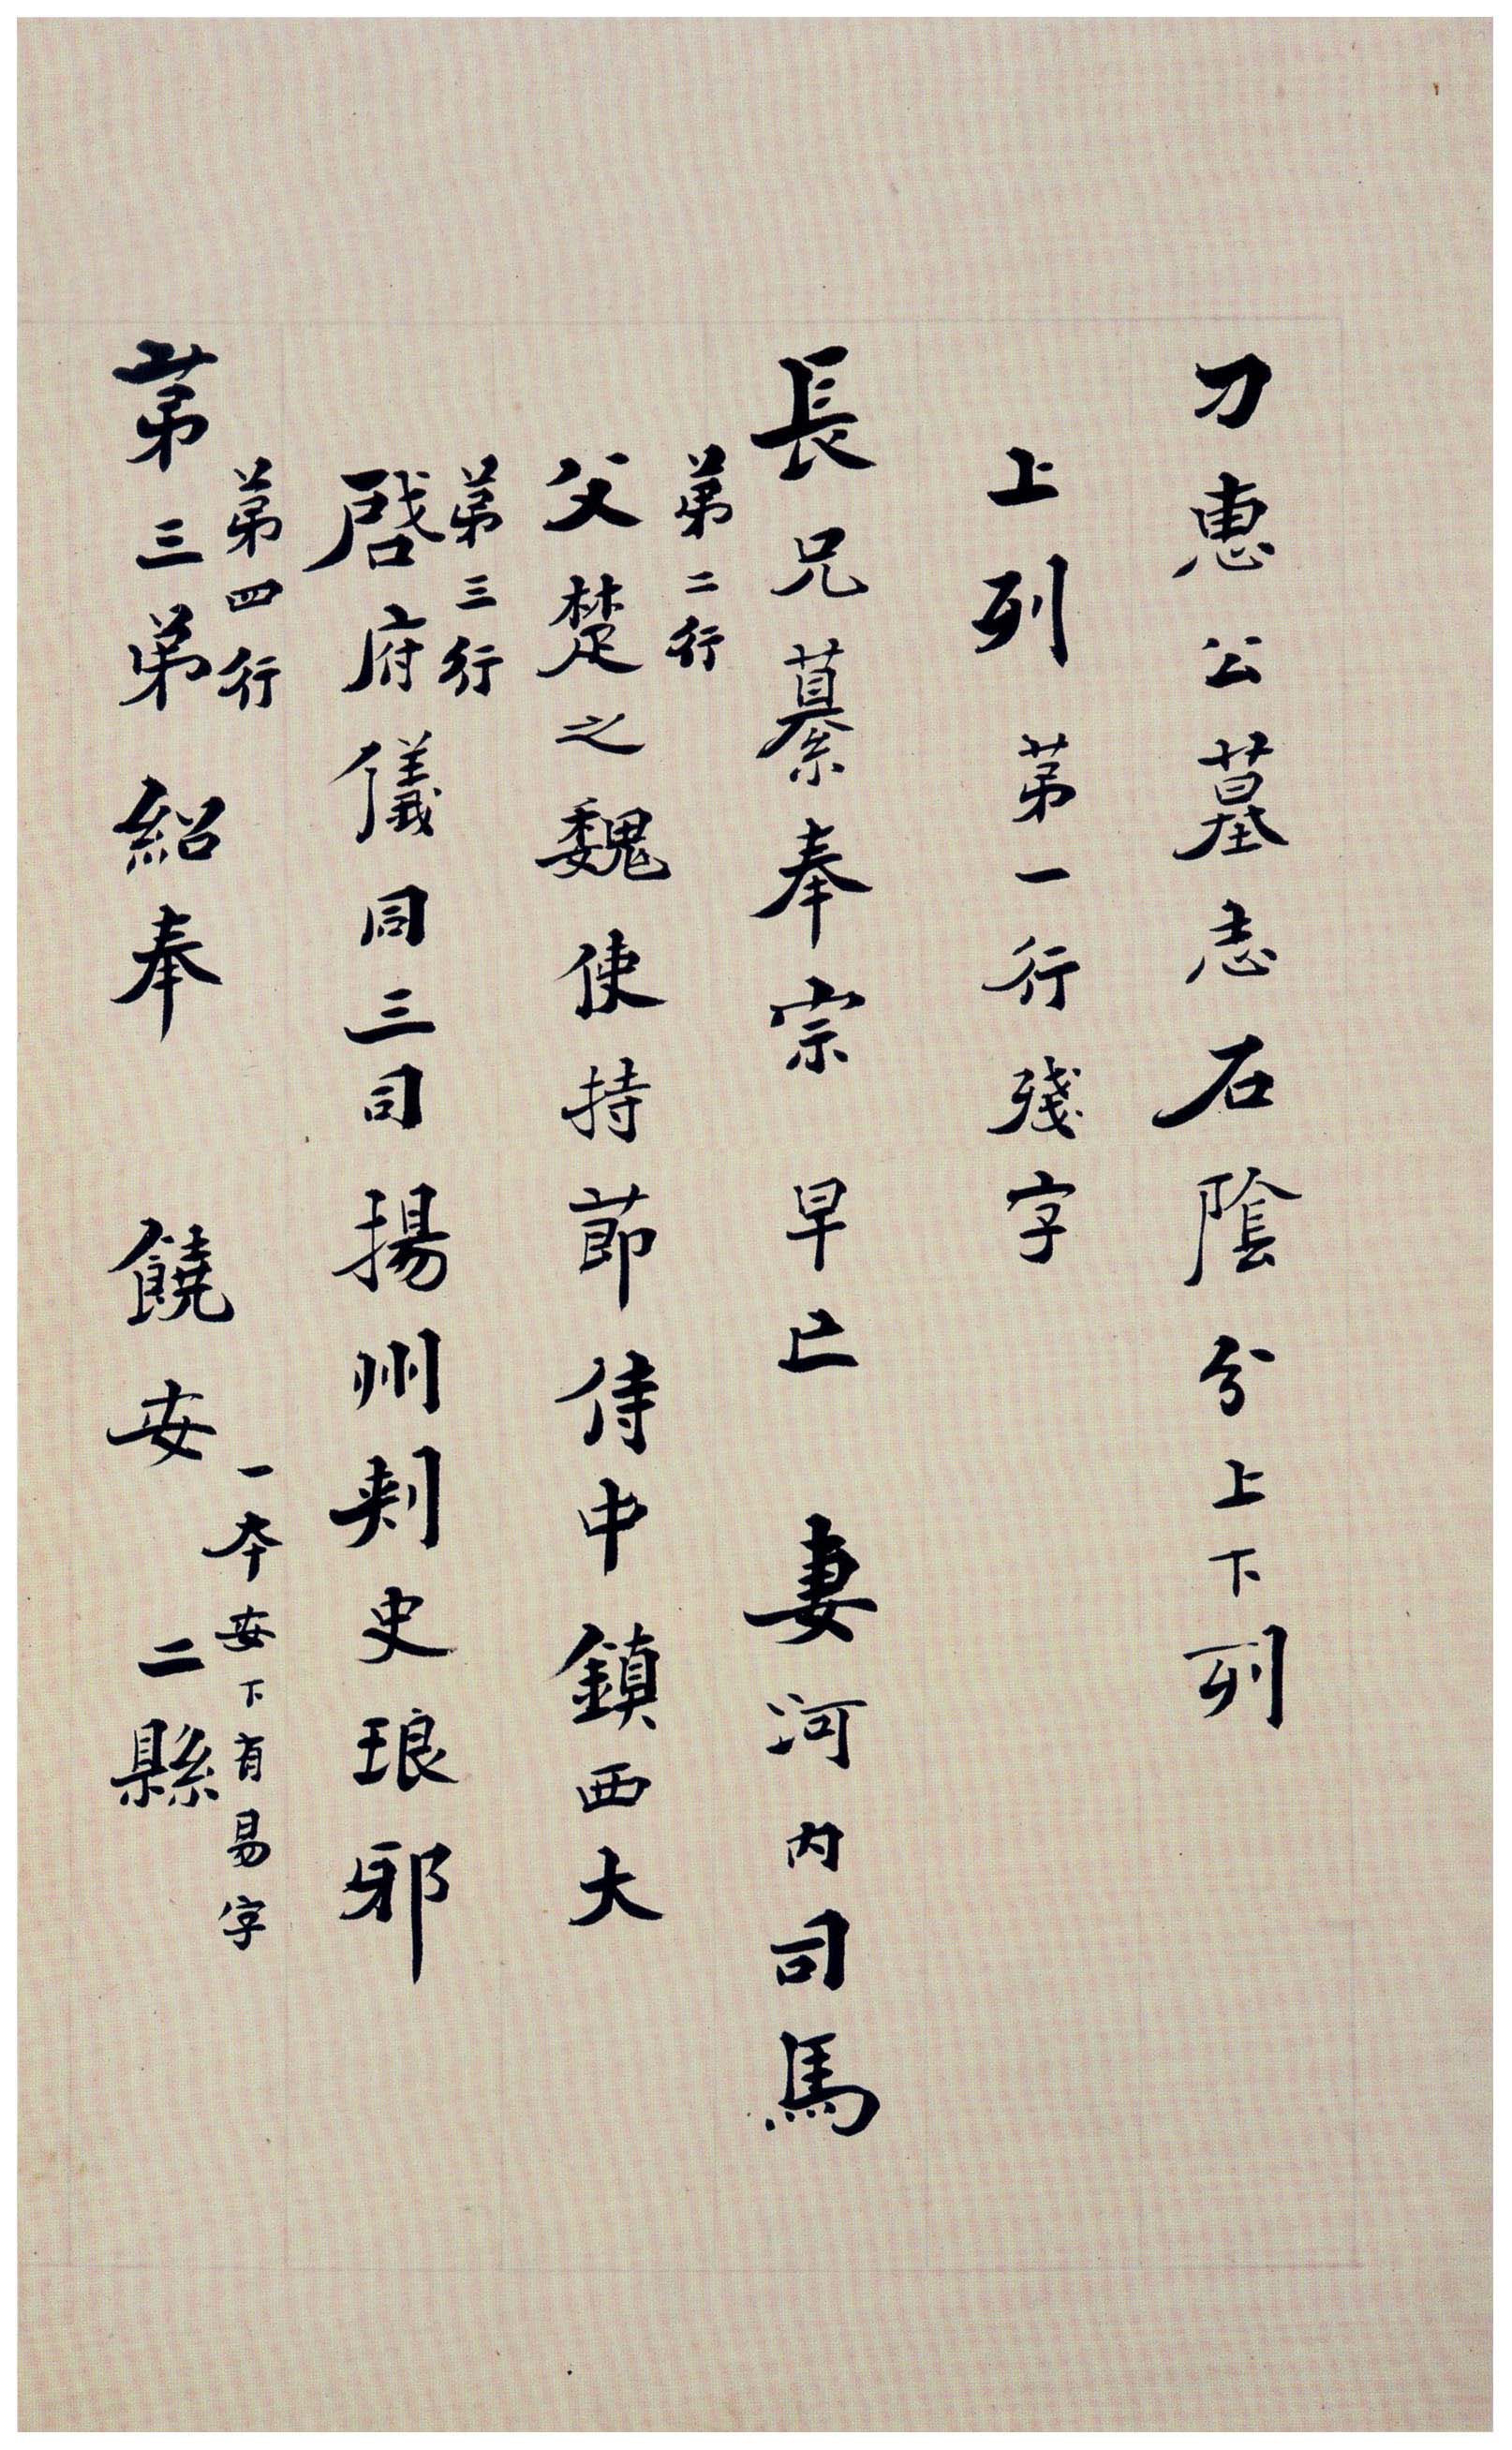 刀惠公墓志石陰分上下列
上列 第一行殘字
長兄纂奉宗 早亡 妻河内司馬
第二行
父楚之魏使持節侍中鎮西大
第三行
啓府儀同三司揚州刺史琅邪
第四行
第三弟紹奉 饒安 二縣
一本安下有易字